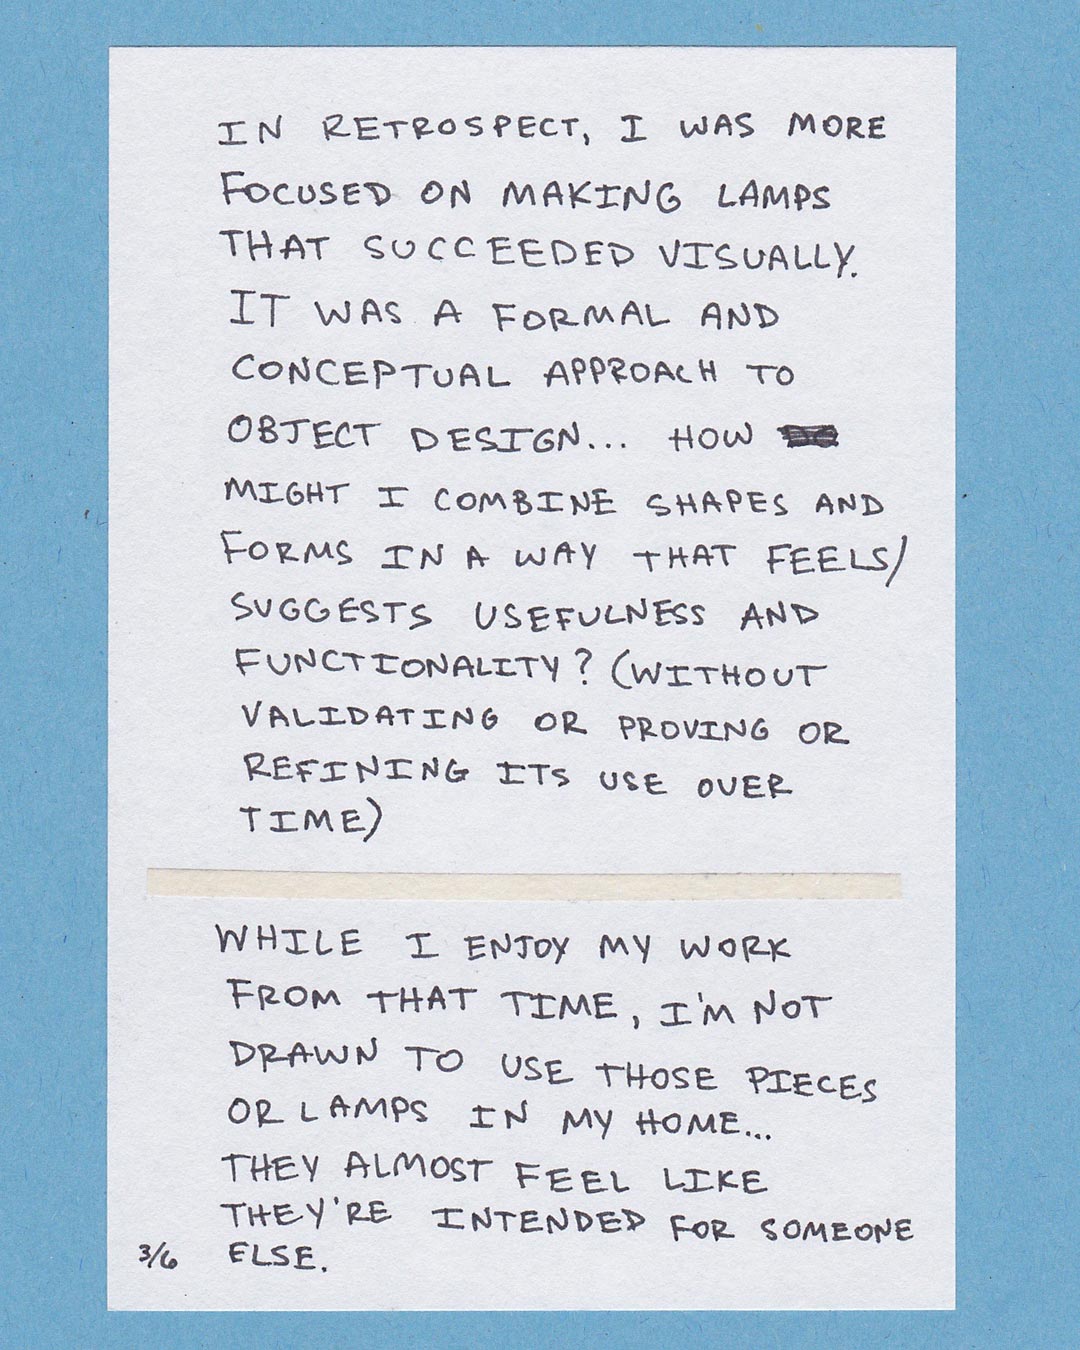 IN RETROSPECT, I WAS MORE
FOCUSED ON MAKING LAMPS
THAT SUCCEEDED VISUALLY.
IT WAS A FORMAL AND
CONCEPTUAL APPROACH TO
OBJECT DESIGN... HOW
MIGHT I COMBINE SHAPES AND
FORMS IN A WAY THAT FEELS/
SUGGESTS USEFULNESS AND
FUNCTIONALITY? (WITHOUT
VALIDATING OR PROVING OR
REFINING ITS USE OVER
TIME)
WHILE I ENJOY MY WORK
FROM THAT TIME, I'M NOT
DRAWN TO USE THOSE PIECES
OR LAMPS IN MY HOME...
THEY ALMOST FEEL LIKE
THEY'RE INTENDED FOR SOMEONE
3/6 ELSE.